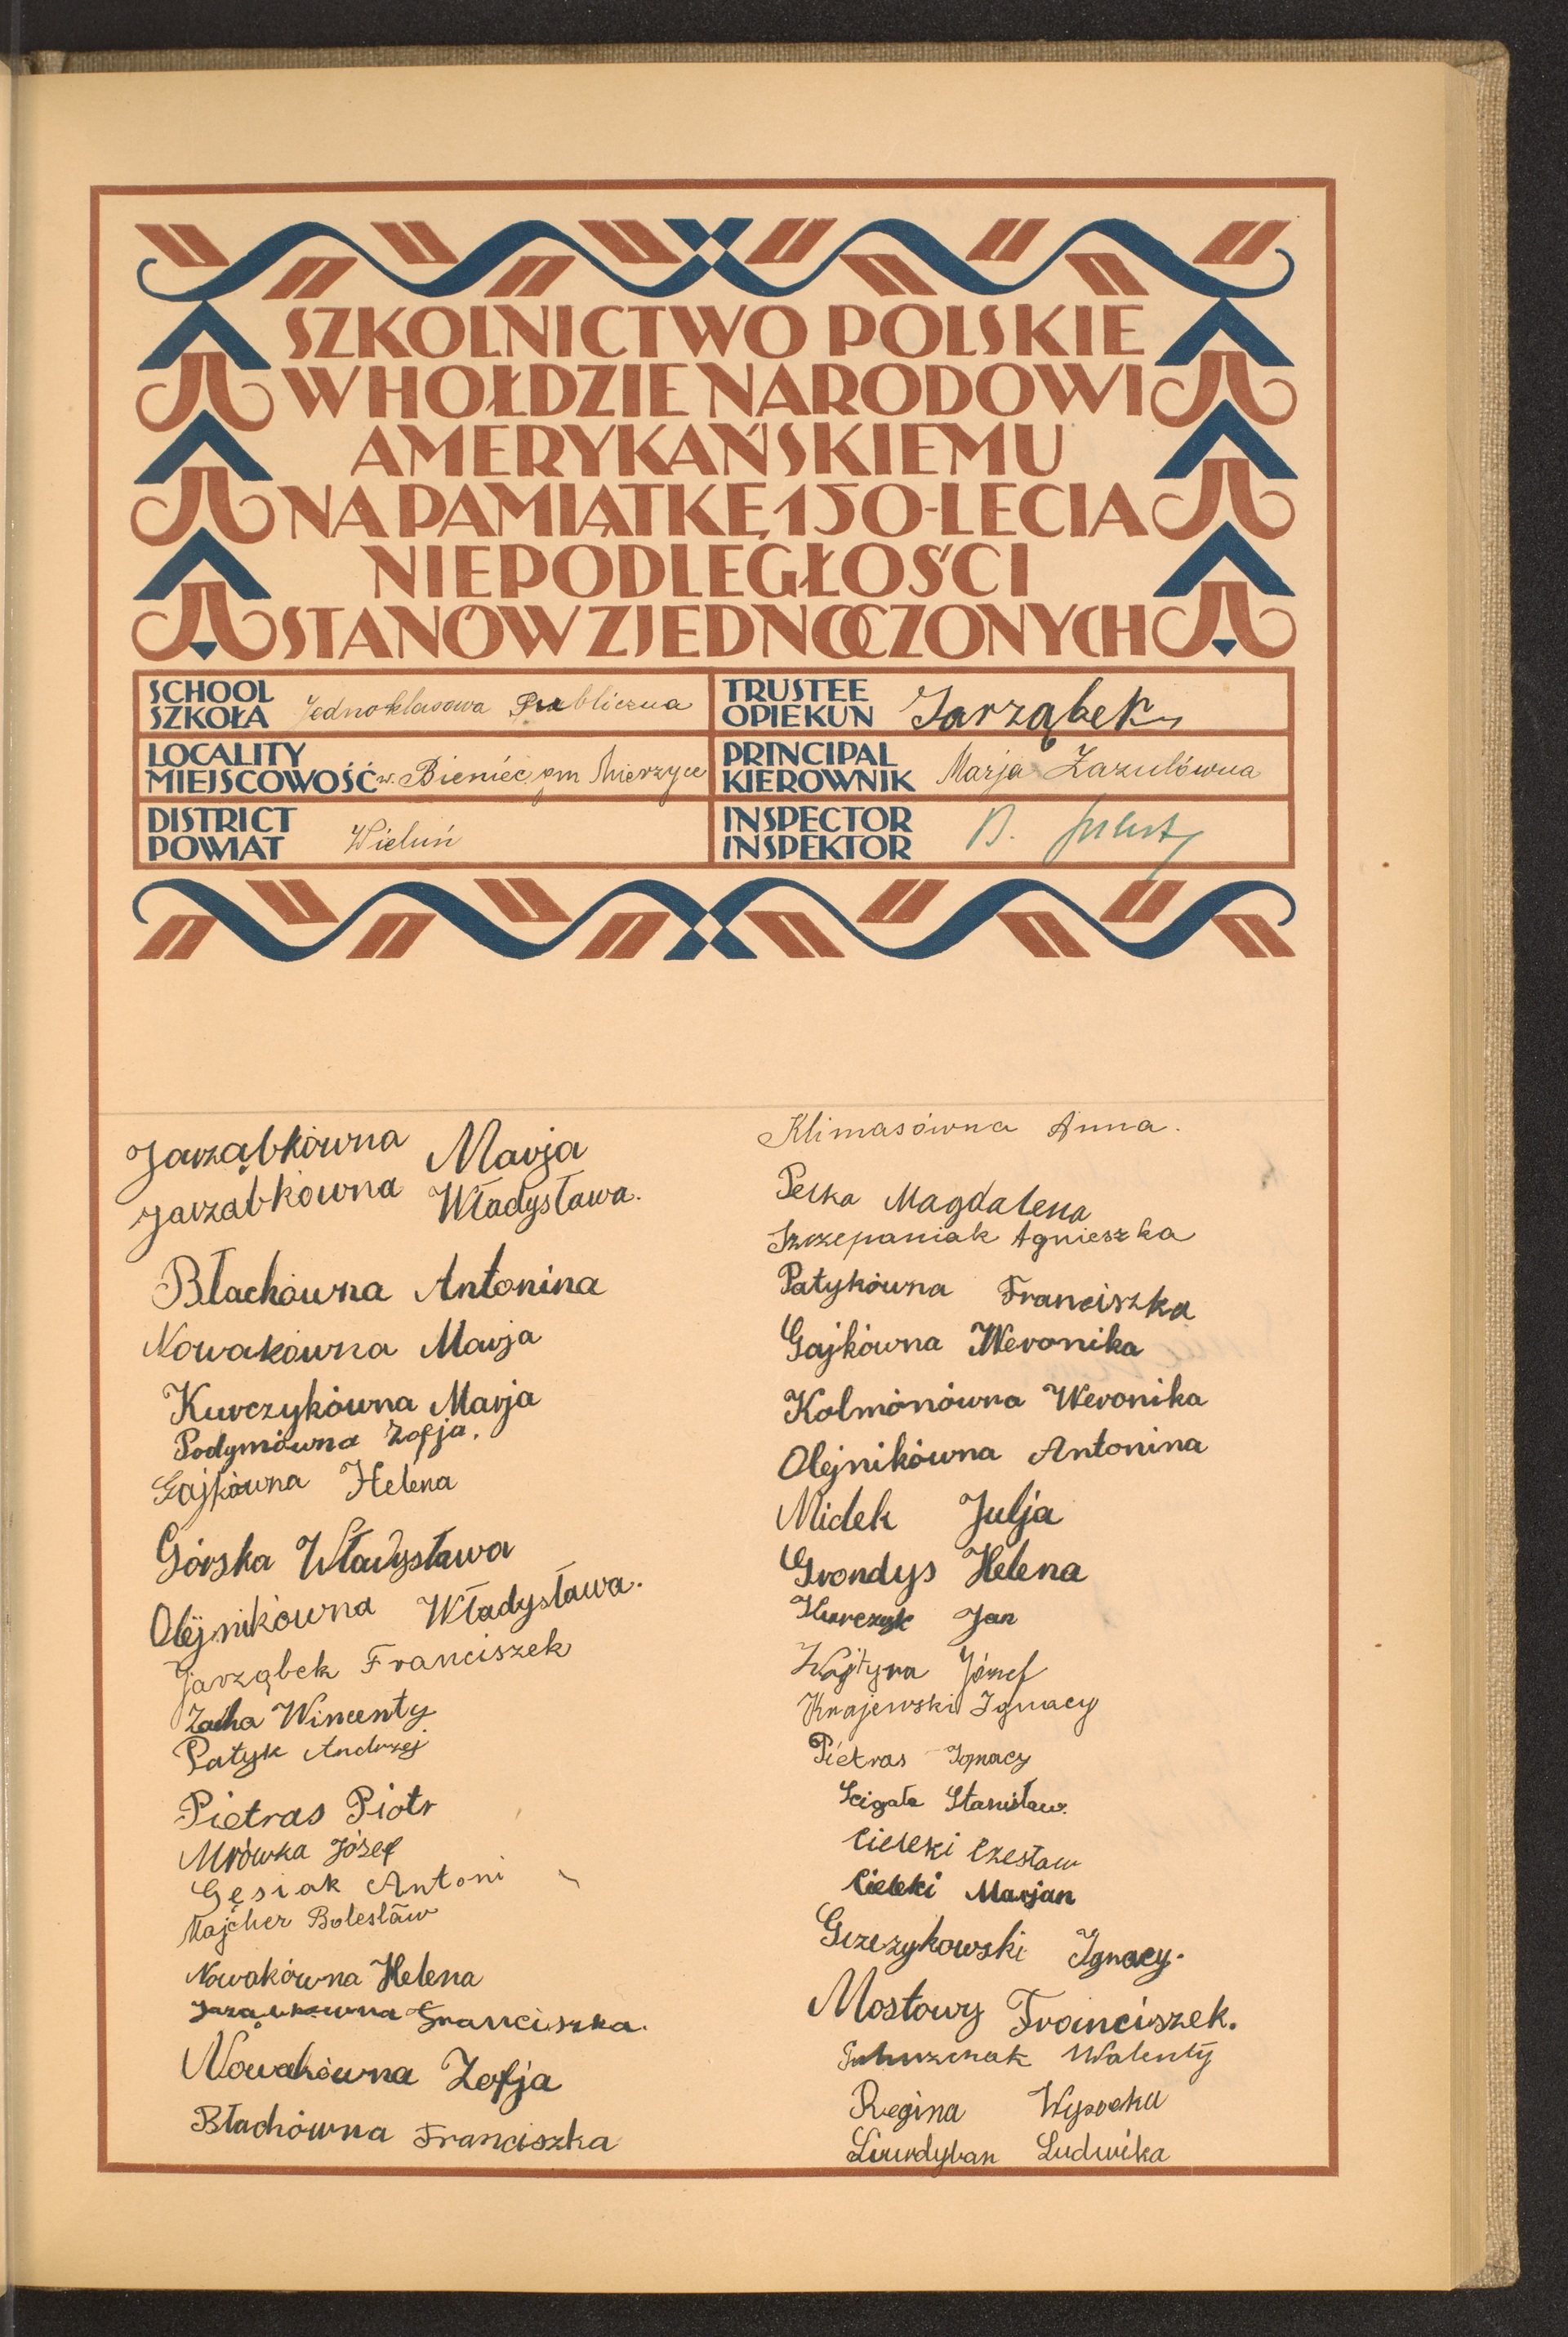 SZKOLNICTWO POLSKIE
W HOŁDZIE NARODOWI
AMERYKAŃSKIEMU
NA PAMIĄTKĘ 150-LECIA
NIEPODLEGŁOŚCI
STANÓW ZJEDNOCZONYCH
SCHOOL
SZKOŁA Jednoklasowa Publiczna
TRUSTEE
OPIEKUN Jarząbek
LOCALITY
MIEJSCOWOŚĆ w. Bieniéc gm Mierzyce
PRINCIPAL
KIEROWNIK Marja Zazulówna
DISTRICT
POWIAT Wieluń
INSPECTOR
INSPEKTOR B.
Jarząbkówna Marja
Jarząbkówna Władysława.
Błachówna Antonina
Nowakówna Marja
Kurczykówna Marja
Podymówna Zofja.
Gajkówna Helena
Górska Władysława
Olejnikówna Władysława.
Jarząbek Franciszek
Zacha Wincenty
Patyk Andrzej
Pietras Piotr
Mrówka Józef
Gęsiak Antoni
Majcher Bolesław
Nowakówna Helena
Jarząbkówna Franciszka.
Nowakówna Zofja
Błachówna Franciszka
Klimasówna Anna.
Pełka Magdalena
Szczepaniak Agnieszka
Patykówna Franciszka
Gajkówna Weronika
Kolmónówna Weronika
Olejnikówna Antonina
Midek Julja
Grondys Helena
Kurczyk Jan
Wojtyra Józef
Krajewski Ignacy
Pietras Ignacy
Scigała Stanisław.
Cieleki Czesław
Cieleki Marjan
Grzezykowski Ignacy.
Mostowy Franciszek.
Walenty
Regina Wysocka
Ludwika